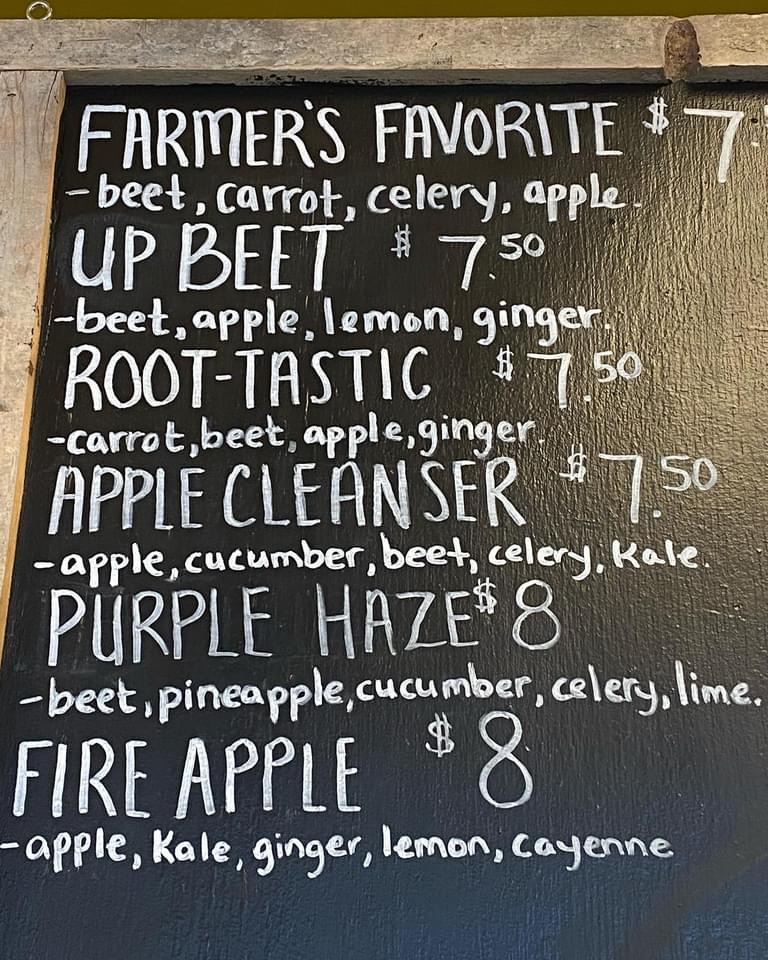 FARMER'S FAVORITE $7.
-beet, carrot, celery, apple.
UP BEET $7.50
-beet, apple, lemon, ginger.
ROOT-TASTIC $7.50
-carrot, beet, apple, ginger.
APPLE CLEANSER $7.50
-apple, cucumber, beet, celery, Kale.
PURPLE HAZE $8
-beet, pineapple, cucumber, celery, lime.
FIRE APPLE $8
-apple, Kale, ginger, lemon, cayenne